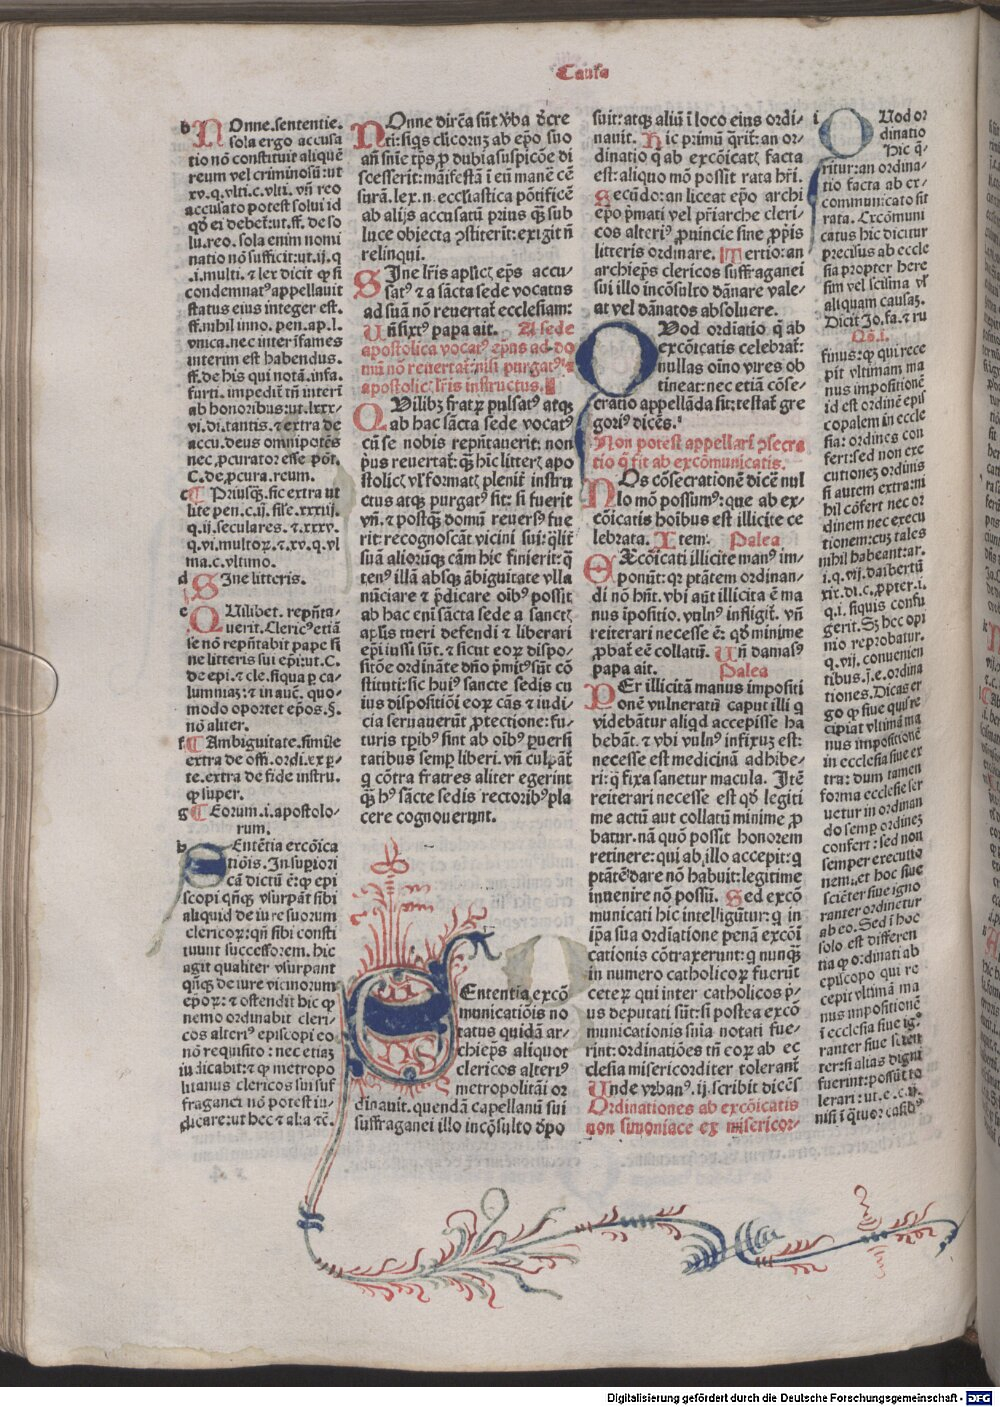 Causa
b NOnne.sententie.
sola ergo accusa
tio nō constituit aliquē
reum vel criminosū:ut
xv.q.vlti.c.vlti. vn̄ reo
accusato potest solui id
qd̄ ei debet᷑:ut.ff. de so
lu.reo. sola enim nomi
natio nō sufficit:ut.ij.q
.i.multi. ⁊ lex dicit ꝙ si
condemnatꝰ appellauit
status eius integer est.
ff.nihil inno. pen.ap.l.
vnica.nec inter īfames
interim est habendus.
ff.de his qui notā.infa.
furti. impedit᷑ tn̄ interī
ab honoribus:ut.lxxx-
vi.di.tantis.⁊ extra de
accu.deus omnipotēs
nec ꝓcurator esse pōt.
C.de ꝓcura.reum.
c Priusꝙ.sic extra ut
lite pen.c.ij. sile.xxxiij.
q.ij.seculares. ⁊.xxxv.
q.vi.multoꝝ.⁊.xv.q.vl
ma.c.vltimo.
d SIne litteris.
e QUilibet. repn̄ta-
uerit.Clericꝰ etiā
se nō repn̄tabit pape si
ne litteris sui ep̄i:ut.C.
de epi.⁊ cle.siqua ꝑ ca-
lumniaȝ:⁊ in auc̄. quo-
modo oportet ep̄os.§.
nō aliter.
f Ambiguitate.simile
extra de offi.ordi.ex ꝑ-
te.extra de fide instru.
ꝙ super.
g Eorum.i.apostolo-
rum.
h SEntētia excōica
tiōis. In supiori
cā dictū ē:ꝙ epi
scopi qn̄ꝙ vsurpāt sibi
aliquid de iure suorum
clericoꝝ:qn̄ sibi consti
tuunt successorem. hic
agit qualiter vsurpant
qn̄ꝙ de iure vicinorum
ep̄oꝝ: ⁊ ostendit hic ꝙ
nemo ordinabit cleri-
cos alteriꝰ episcopi eo
nō requisito : nec etiaȝ
iudicabit:⁊ ꝙ metropo
litanus clericos sui suf
fraganei nō potest iu-
dicare:ut hec ⁊ alia ⁊c̄.
NOnne dirēa sūt v̄ba d̄cre
ti:siqs clicoruȝ ab ep̄o suo
an̄ sn̄ie tp̄s ꝓ dubia suspicōe di
scesserit:māifestā ī eū manē cē
surā.lex.n. eccl̄iastica pōtificē
ab alijs accusatū prius ꝙ̄ sub
luce obiecta ꝯstiterit: exigit n̄
relinqui.
SIne lr̄is aplicꝭ ep̄s accu-
satꝰ ⁊ a sācta sede vocatus
ad suā nō reuertat᷑ ecclesiam:
Un̄ sixtꝰ papa ait. A sede
apostolica vocatꝰ ep̄us ad do
mū nō reuertat᷑:nisi purgatꝰ ⁊
apostolicꝭ lr̄is instructus.
QUilibȝ fratꝝ pulsatꝰ atqȝ
ab hac sācta sede vocatꝰ
cū se nobis repn̄tauerit: non
p̄us reuertat᷑:ꝙ̄ hic litterꝭ apo
stolicꝭ vl̓ formatꝭ plenit᷑ instru
ctus atqȝ purgatꝰ sit: si fuerit
vn̄.⁊ postqȝ domū reuersꝰ fue
rit:recognoscāt vicini sui:ql̄it᷑
suā alioruȝqȝ cām hic finierit:q̄
tenꝰ illā absqȝ ābiguitate vlla
nūciare ⁊ p̄dicare oibꝰ possit
ab hac eni sācta sede a sanctꝭ
apl̄is tueri defendi ⁊ liberari
ep̄i iussi sūt.⁊ sicut eoꝝ dispo-
sitōe ordināte dn̄o p̄mitꝰ sūt cō
stituti:sic huiꝰ sancte sedis cu
ius dispositiōi eoꝝ cās ⁊ iudi-
cia seruauerūt ꝓtectione: fu-
turis tp̄ibꝰ sint ab oibꝰ ꝑuersi
tatibus semꝑ liberi. vn̄ culpāt᷑
q cōtra fratres aliter egerint
ꝙ̄ hꝰ sācte sedis rectoribꝰ pla
cere cognouerunt.
SEntentia excō
municatiōis no
tatus quidā ar-
chiep̄s aliquot
clericos alteriꝰ
metropolitāi or
dinauit. quendā capellanū sui
suffraganei illo incōsulto dpo
suit:atqȝ aliū ī loco eius ordi-
nauit. Hic primū q̄rit᷑: an or-
dinatio q̄ ab excōicatꝭ facta
est: aliquo mō possit rata hr̄i.
Secūdo:an liceat ep̄o archi
ep̄o p̄mati vel pr̄iarche cleri-
cos alteriꝰ ꝓuincie sine ꝓpr̄is
litteris ordinare. Tertio:an
archiep̄s clericos suffraganei
sui illo incōsulto dānare vale-
at vel dānatos absoluere.
QUod ordiatio q̄ ab
excōicatis celebrat᷑:
nullas oino vires ob
tineat: nec etiā cōse-
cratio appellāda sit:testat᷑ gre
goriꝰ dicēs.
Non potest appellari ꝯsecra
tio q̄ fit ab excōmunicatis.
NOs cōsecrationē dicē nul
lo mō possumꝰ: que ab ex-
cōicatis hoibus est illicite ce
lebrata. Item: Palea
EXcōicati illicite manꝰ im-
ponūt: qꝛ ptātem ordinan-
di nō hn̄t. vbi aūt illicita ē ma
nus īpositio. vulnꝰ infligit᷑. vn̄
reiterari necesse ē: qd̄ minime
ꝓbat᷑ eē collatū. Un̄ damasꝰ
papa ait. Palea
PEr illicitā manus impositi
onē vulneratū caput illi q
videbāt᷑ aliqd accepisse ha
bebāt. ⁊ vbi vulnꝰ infixuȝ est:
necesse est medicinā adhibe-
ri: q̄ fixa sanetur macula. Itē
reiterari necesse est qd̄ legiti
me actū aut collatū minime ꝓ
batur. nā quō possit honorem
retinere: qui ab illo accepit: q
ptātē dare nō habuit: legitime
inuenire nō possū. Sed excō
municati hic intelligūtur: q in
ip̄a sua ordiatione penā excōi
cationis cōtraxerunt: q nunqȝ
in numero catholicoꝝ fuerūt
ceteꝝ qui inter catholicos p̄-
us deputati sūt: si postea excō
municationis sn̄ia notati fue-
rint: ordinatiōes tn̄ eoꝝ ab ec
clesia misericorditer tolerant᷑
Unde vrbanꝰ.ij. scribit dicēs
Ordinationes ab excōicatis
non symoniace ex misericor-
i QUod or
dinatio
Hic q̄-
ritur: an ordina-
tio facta ab ex-
communicato sit
rata. Excōmuni
catus hic dicitur
precisus ab eccle
sia propter here
sim vel scisma vl̓
aliquam causaȝ.
Dicit Jo.fa.⁊ ru
Qō.i.
finus: ꝙ qui rece
pit vltimam ma
nus impositionē
id est ordinē epis
copalem in eccle
sia: ordines con
fert: sed non exe
cutioneȝ ordinis
si autem extra:ni
hil cōfert nec or
dinem nec execu
tionem:cuȝ tales
nihil habeant:ar.
i.q.vij.daibertū
xix.di.c.ꝓpter.i.
q.i. siquis confu
gerit. Sȝ hec opi
nio reprobatur.
q.vij. conuenien
tibus.j.e.ordina
tiones. Dicas er
go ꝙ siue quis re
cipiat vltimā ma
nus impositionē
in ecclesia siue ex
tra: dum tamen
forma ecclesie ser
uetur in ordinan
do semꝑ ordineȝ
confert: sed non
semper executio
nem:et hoc siue
sciēter siue igno
ranter ordinetur
ab eo. Sed ī hoc
solo est differen
tia ꝙ ordinati ab
episcopo qui re
cepit vltimā ma
nus impositionē
ī ecclesia siue ig-
ranter siue scien
ter:si alias digni
fuerint:possūt to
lerari: ut.e.c.ij.
nisi ī q̄tuor casibꝰ
Digitalisierung gefördert durch die Deutsche Forschungsgemeinschaft - DFG